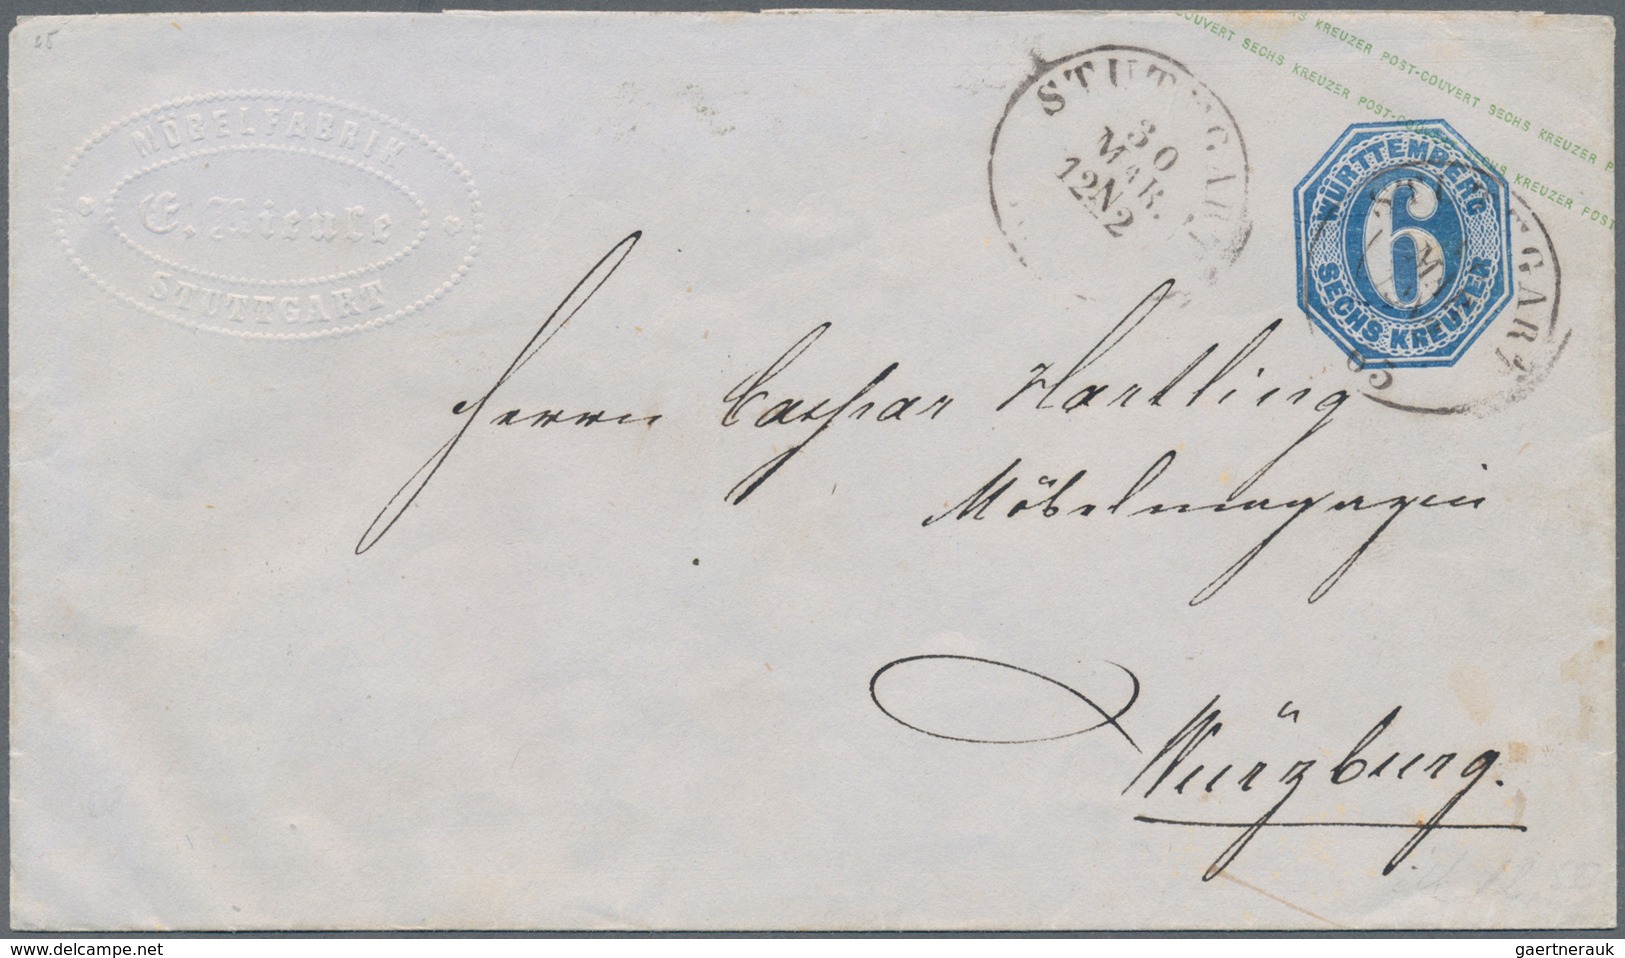 MÖBELFABRIK
STUTTGART
STUTTGART
30
MAR.
12N2
COUVERT SECHS KREUZER POST-COUVERT SECHS KREUZER
KREUZER POST-COUVERT SECHS KREUZER P
SECHS KREUZER POST
WÜRTTEMBERG
6
SECHS KREUZER
Herrn Caspar Hartling
Möbelmagazin
Würzburg.
delcampe.net
gaertnerauk